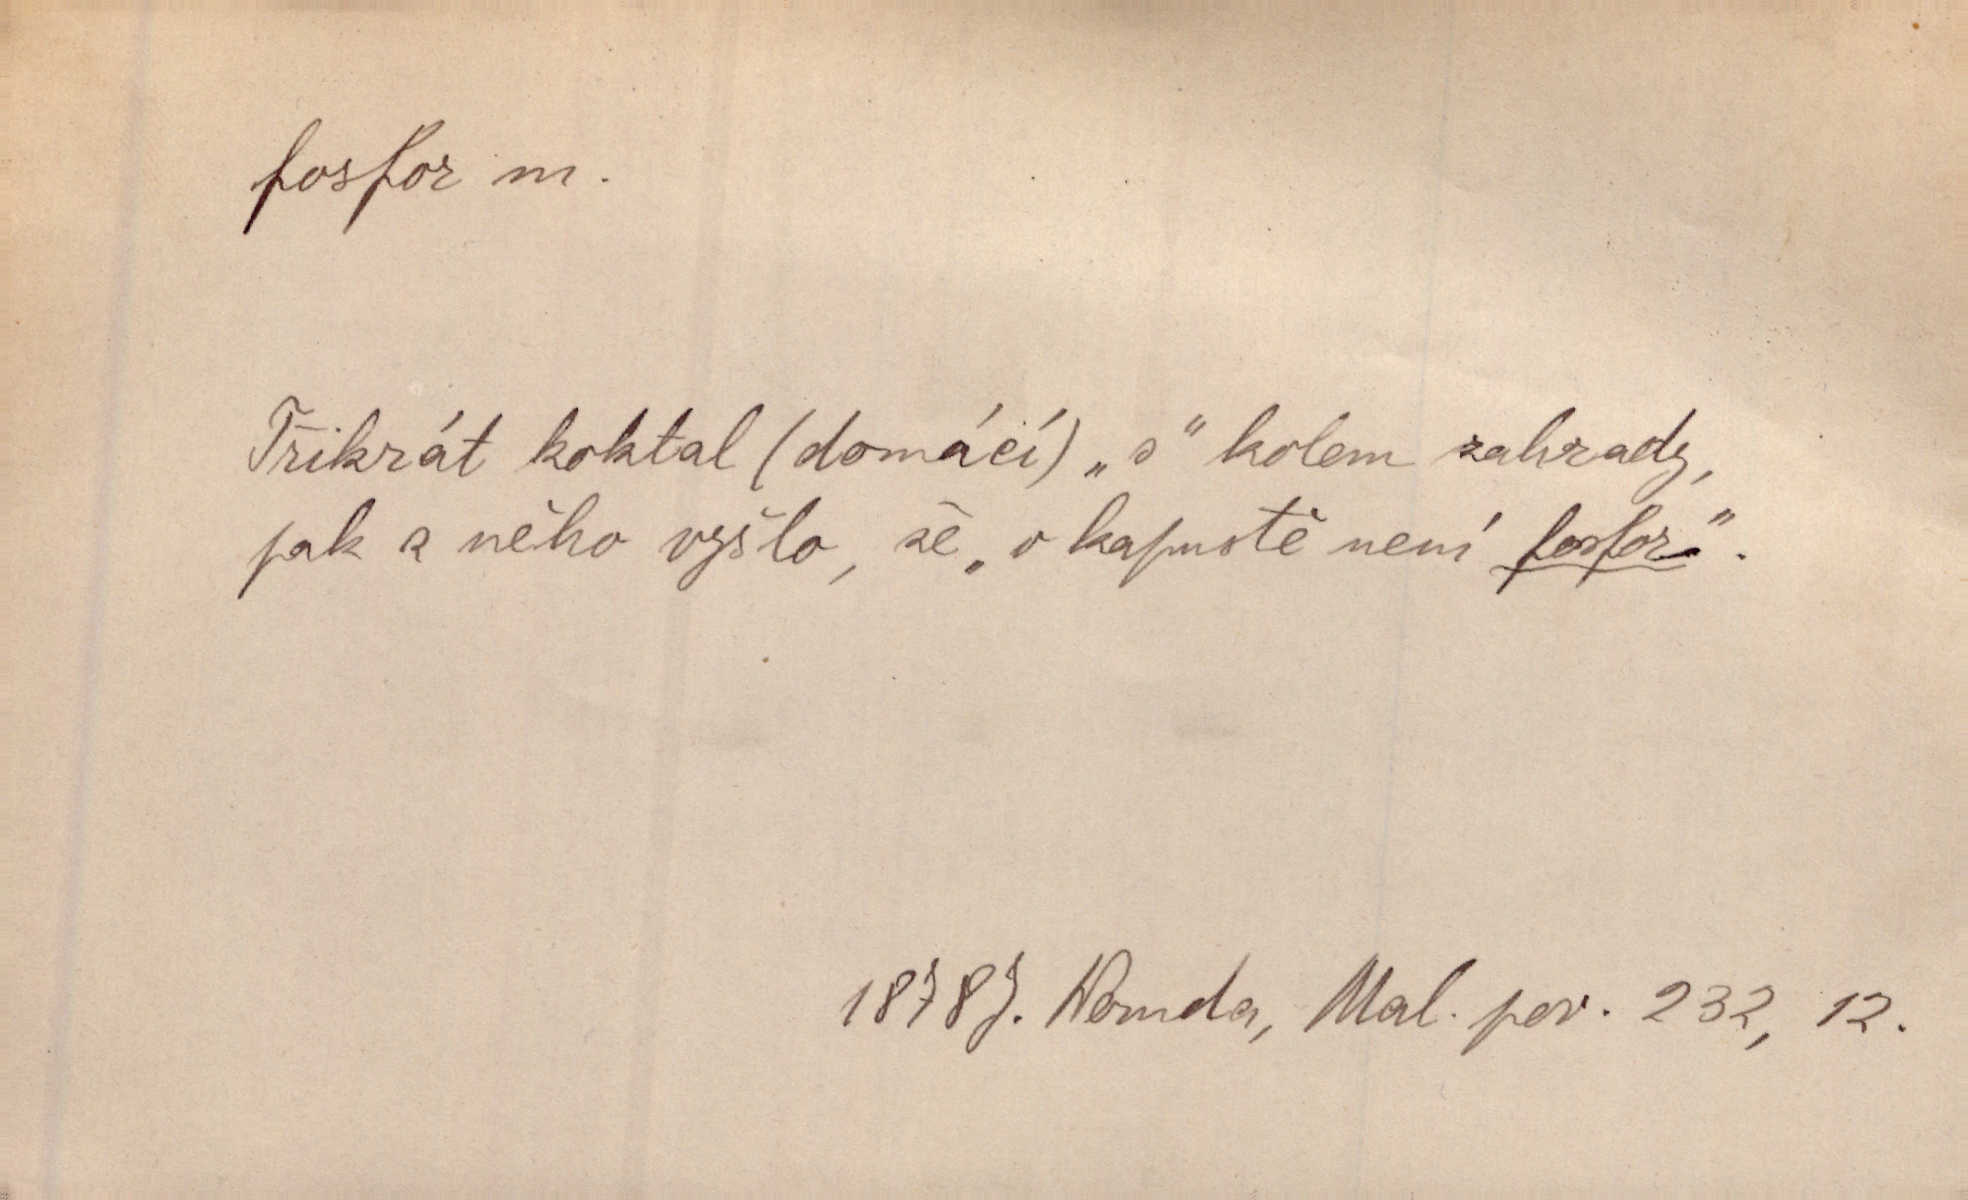 fosfor m.
Třikrát koktal (domácí) „o“ kolem zahrady,
pak z něho vyšlo, že „v kapustě není fosfor“.
1878 J. Neruda, Mal. pov. 232, 12.